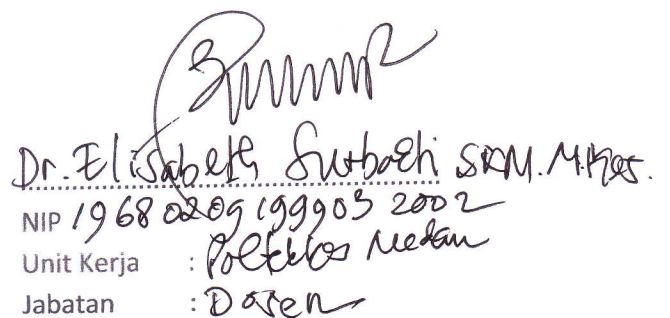 Dr. Elisabeth Surbakti SKM. M.Kes.
NIP 19680209 199903 2002
Unit Kerja : Poltekkes Medan
Jabatan : Dosen